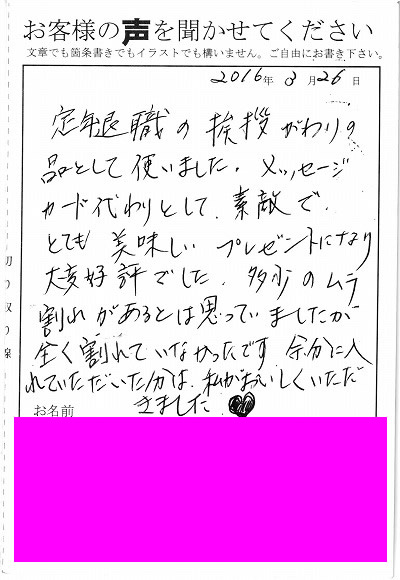 お客様の声を聞かせてください
文章でも箇条書きでもイラストでも構いません。ご自由にお書き下さい。
2016年 3月26日
定年退職の挨拶がわりの
品として使いました。メッセージ
カード代わりとして、素敵で、
とても美味しいプレゼントになり
大変好評でした。多少のムラ
割れがあるとは思っていましたが
全く割れていなかったです。余分に入
れていただいた分は、私がおいしくいただ
きました♥
お名前
切り取り線